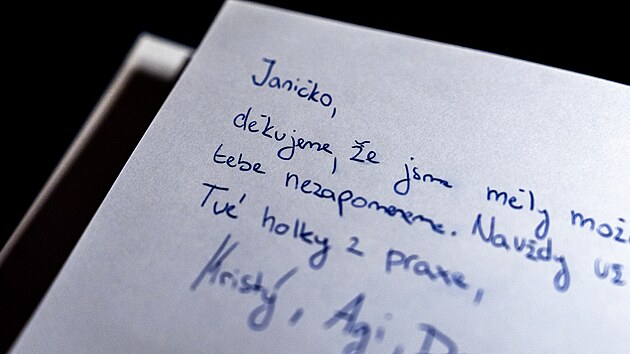 Janičko,
děkujeme, že jsme měly
tebe nezapomeneme. Navždy už
Tvé holky z praxe,
Kristý, Agi,